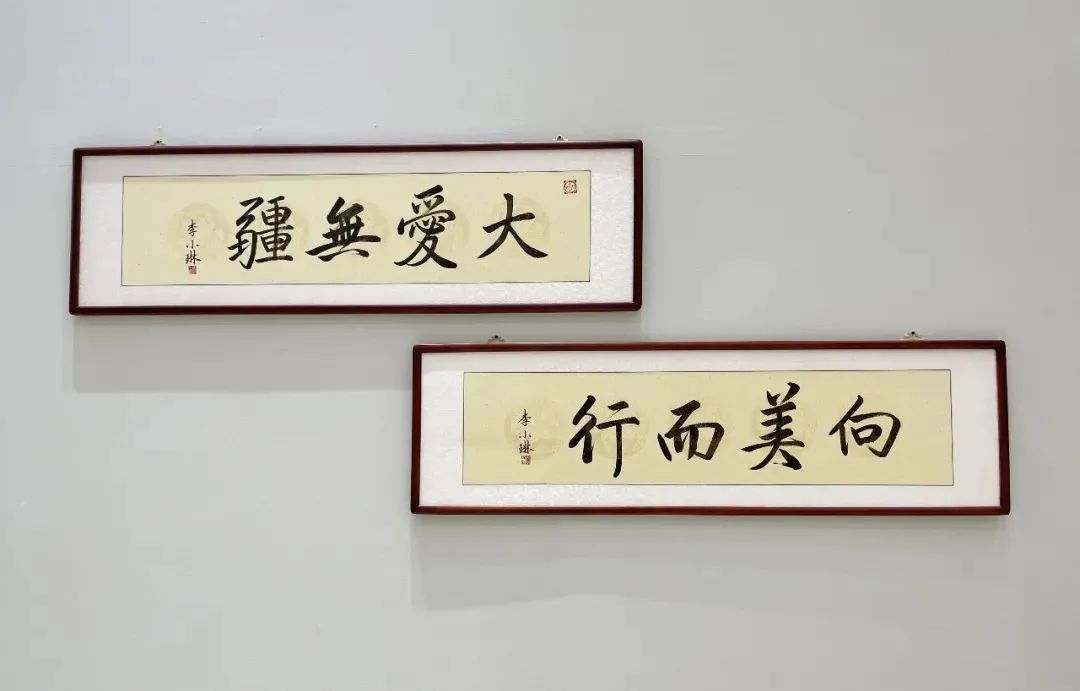 大愛無疆
李小琳
向美而行
李小琳